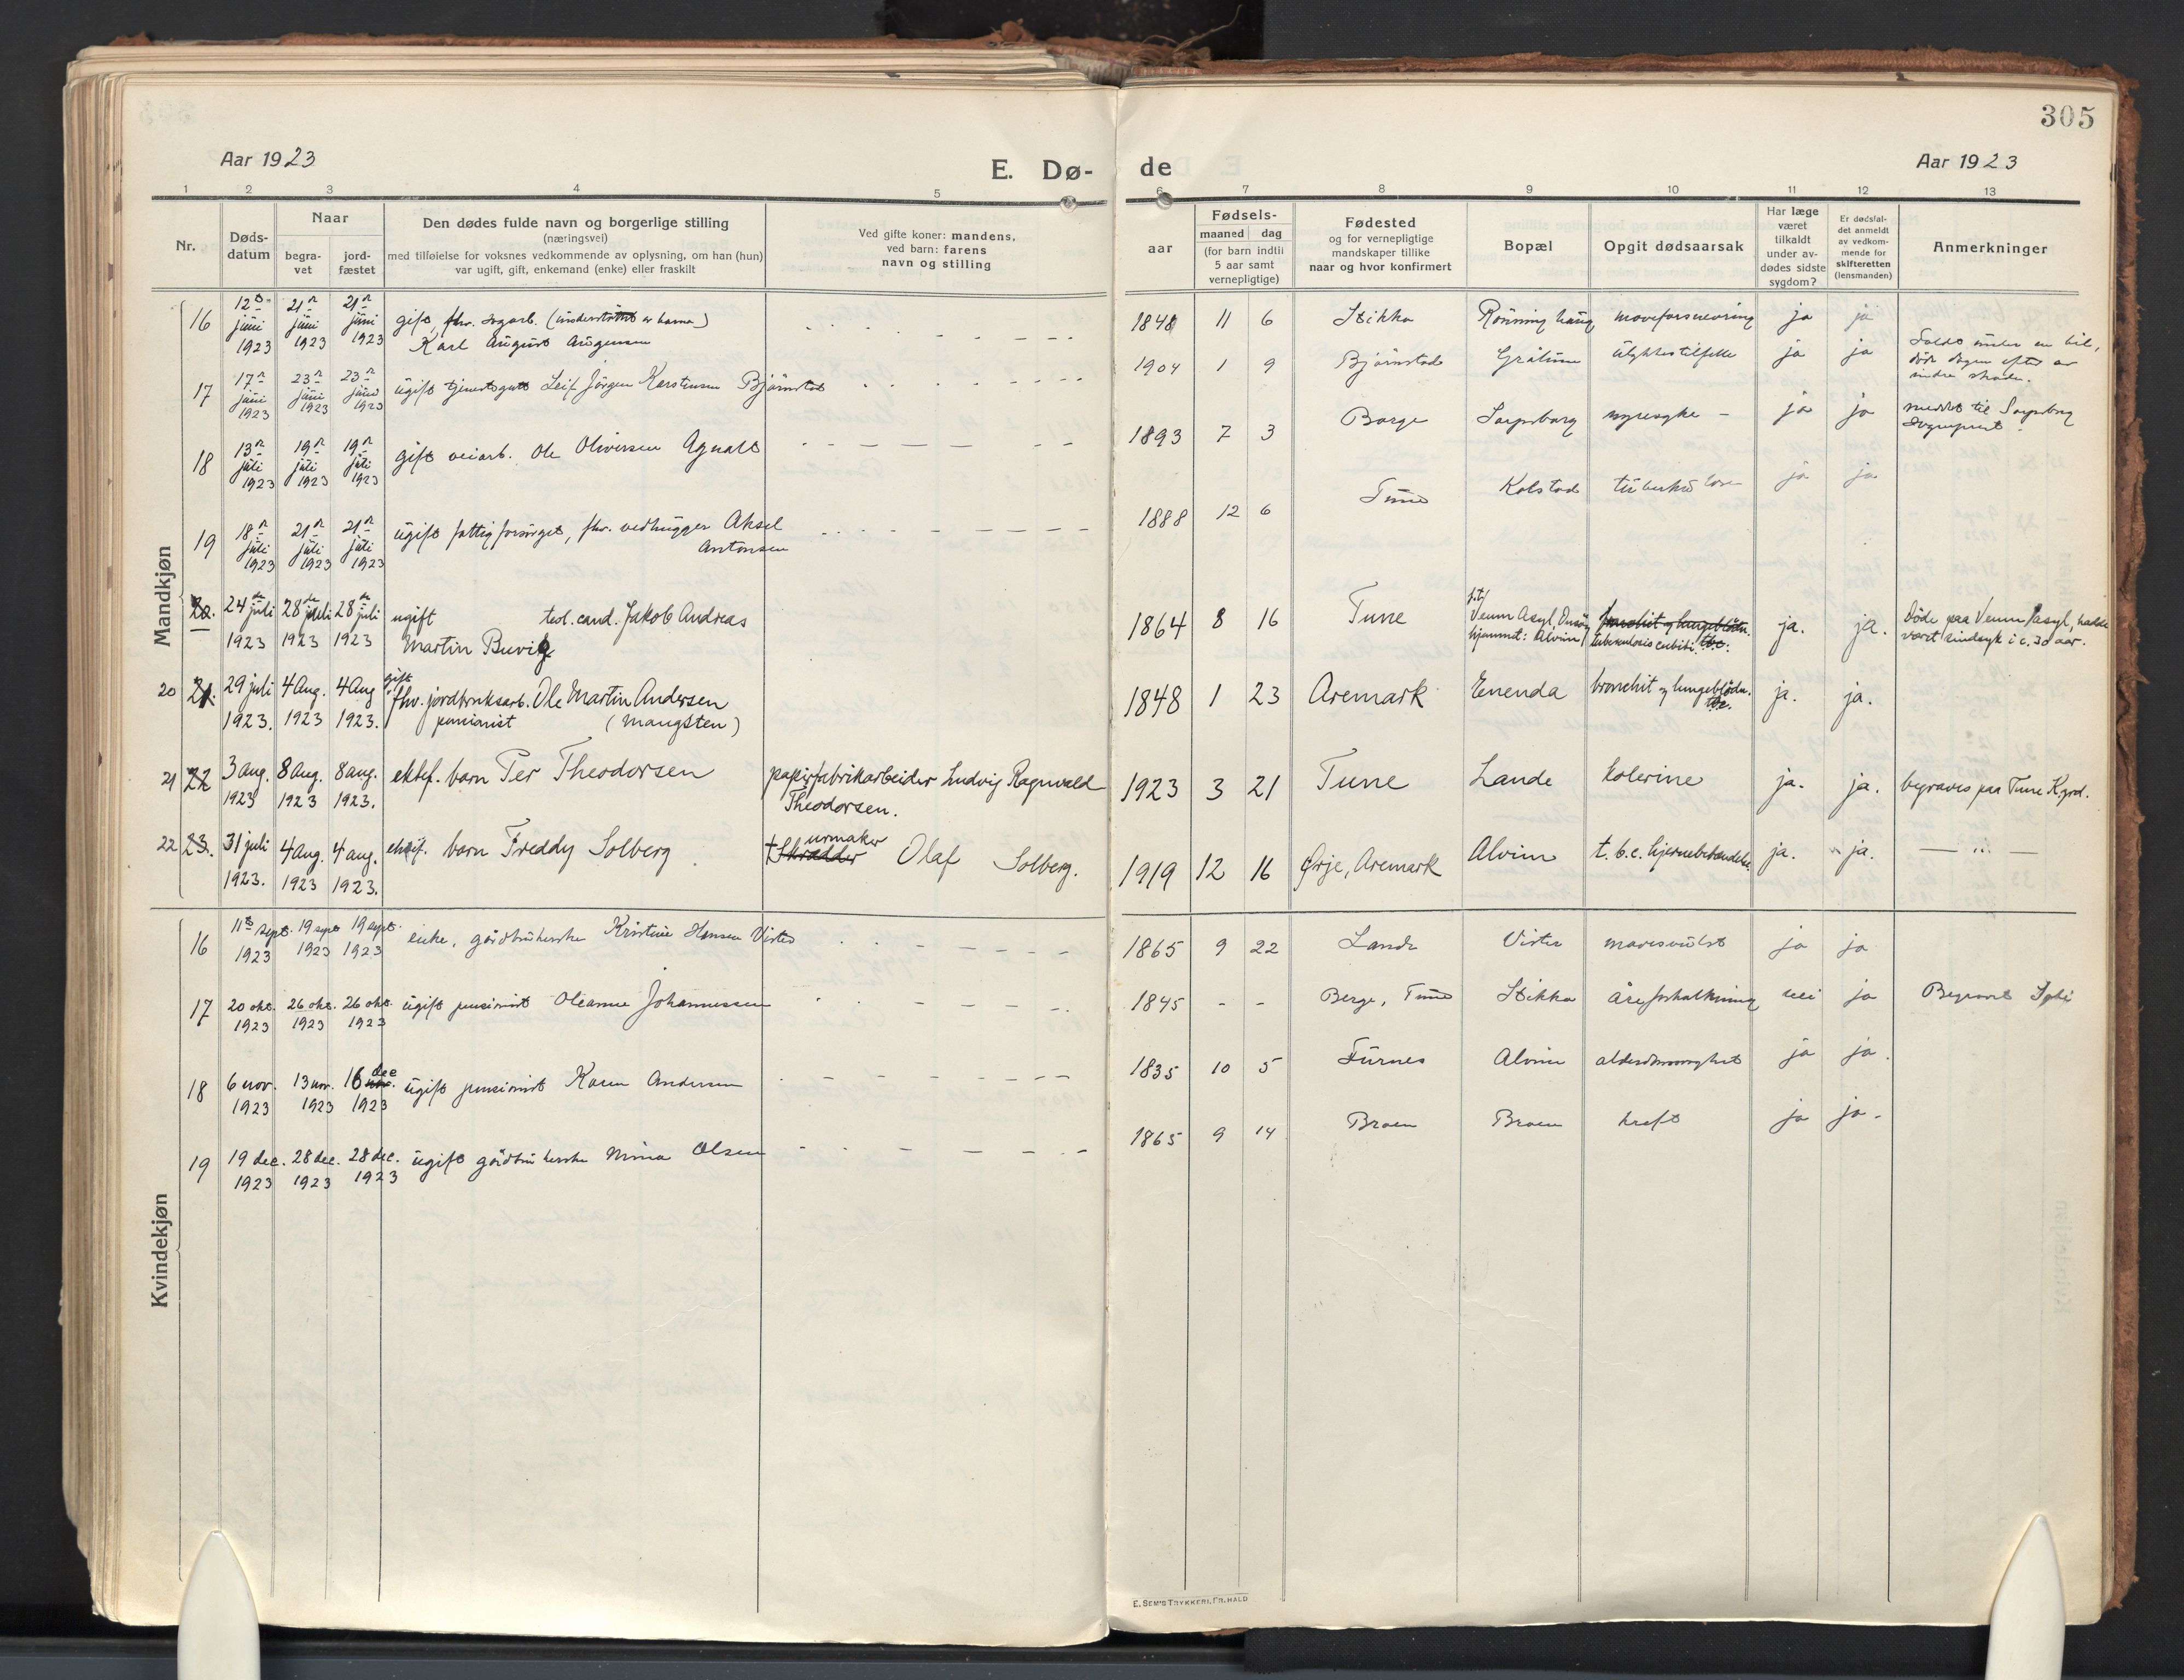 305
Aar 1923
E. Dø-
de
Aar 1923
1 2 3 4 5 6 7 8 9 10 11 12 13
Nr.
Døds-
datum
Naar
begra-
vet
jord-
fæstet
Den dødes fulde navn og borgerlige stilling
(næringsvei)
med tilføielse for voksnes vedkommende av oplysning, om han (hun)
var ugift, gift, enkemand (enke) eller fraskilt
Ved gifte koner: mandens,
ved barn: farens
navn og stilling
aar
Fødsels-
maaned dag
(for barn indtil
5 aar samt
vernepligtige)
Fødested
og for vernepligtige
mandskaper tillike
naar og hvor konfirmert
Bopæl
Opgit dødsaarsak
Har læge
været
tilkaldt
under av-
dødes sidste
sygdom?
Er dødsfal-
det anmeldt
av vedkom-
mende for
skifteretten
(lensmanden)
Anmerkninger
Mandkjøn
16 12te juni 1923 21n juni 1923 21n juni 1923 gift, fhv.
Karl August Augensen
1848 11 6 Stikka Rønninghaug ja ja
17 17n juni 1923 23n juni 1923 23n juni 1923 ugift tjenestegutt Leif Jörgen Karstensen Bjørnstad
1904 1 9 Bjørnstad Grålum ulykkestilfelle ja ja Faldt under en bil,
döde dagen efter av
indre skader.
18 13n juli 1923 19n juli 1923 19n juli 1923 gift veiarb. Ole Oliversen Agnalt
1893 7 3 Borge Sarpsborg nyresyke - ja ja meddt til Sarpsborg
Sogneprest.
19 18n juli 1923 21n juli 1923 21n juli 1923 ugift fattigforsörget, fhv. vedhugger Aksel
Antonsen
1888 12 6 Tune Kolstad tuberkulose ja ja
20. 24de juli 1923 28de juli 1923 28de juli 1923 ugift teol. cand. Jakob Andreas
Martin Buvig
1864 8 16 Tune p.t. Veum Asyl, Onsöy
hjemmet: Alvim bronchit og lungeblödn.
tuberkulosis cubiti. tbc. ja. ja. Döde paa Veum asyl, hadde
været sindsyk i c. 30 aar.
20 21. 29 juli 1923. 4 Aug. 1923 4 Aug 1923. gift
fhv. jordbruksarb. Ole Martin Andersen
pensionist (Mangsten)
1848 1 23 Aremark Enenda bronchit og lungeblödn.
tbc. ja. ja.
21 22 3 aug. 1923 8 Aug. 1923 8 aug. 1923. ektef. barn Per Theodorsen papirfabrikarbeider Ludvig Ragnvald
Theodorsen.
1923 3 21 Tune Lande kolerine ja. ja. begraves paa Tune Kgrd.
22 23. 31 juli 1923. 4 Aug. 1923 4 aug. 1923. ektef. barn Freddy Solberg † Skrædder urmaker Olaf Solberg.
1919 12 16 Ørje, Aremark Alvim t.b.c. hjernebetændelse. ja. ja. — „ —
Kvindekjøn
16 11te sept. 1923 19 sept 1923 19 sept. 1923 enke, gårdbrukerske Kristine Hansen Vister
1865 9 22 Lande Vister mavesvulst ja ja
17 20 okt. 1923 26 okt. 1923 26 okt. 1923 ugift pensionist Oleanne Johannessen
1845 - - Berge, Tune Stikka åreforkalkning nei ja Begravet
18 6 nov. 1923 13 nov. 1923 16 nov. dec 1923 ugift pensionist Karen Andersen
1835 10 5 Furnes Alvim ja ja.
19 19 dec. 1923 28 dec. 1923 28 dec. 1923 ugift gårdbrukerske Mina Olsen
1865 9 14 Braen Braen kreft ja ja.
E. SEM'S TRYKKERI, FR.HALD